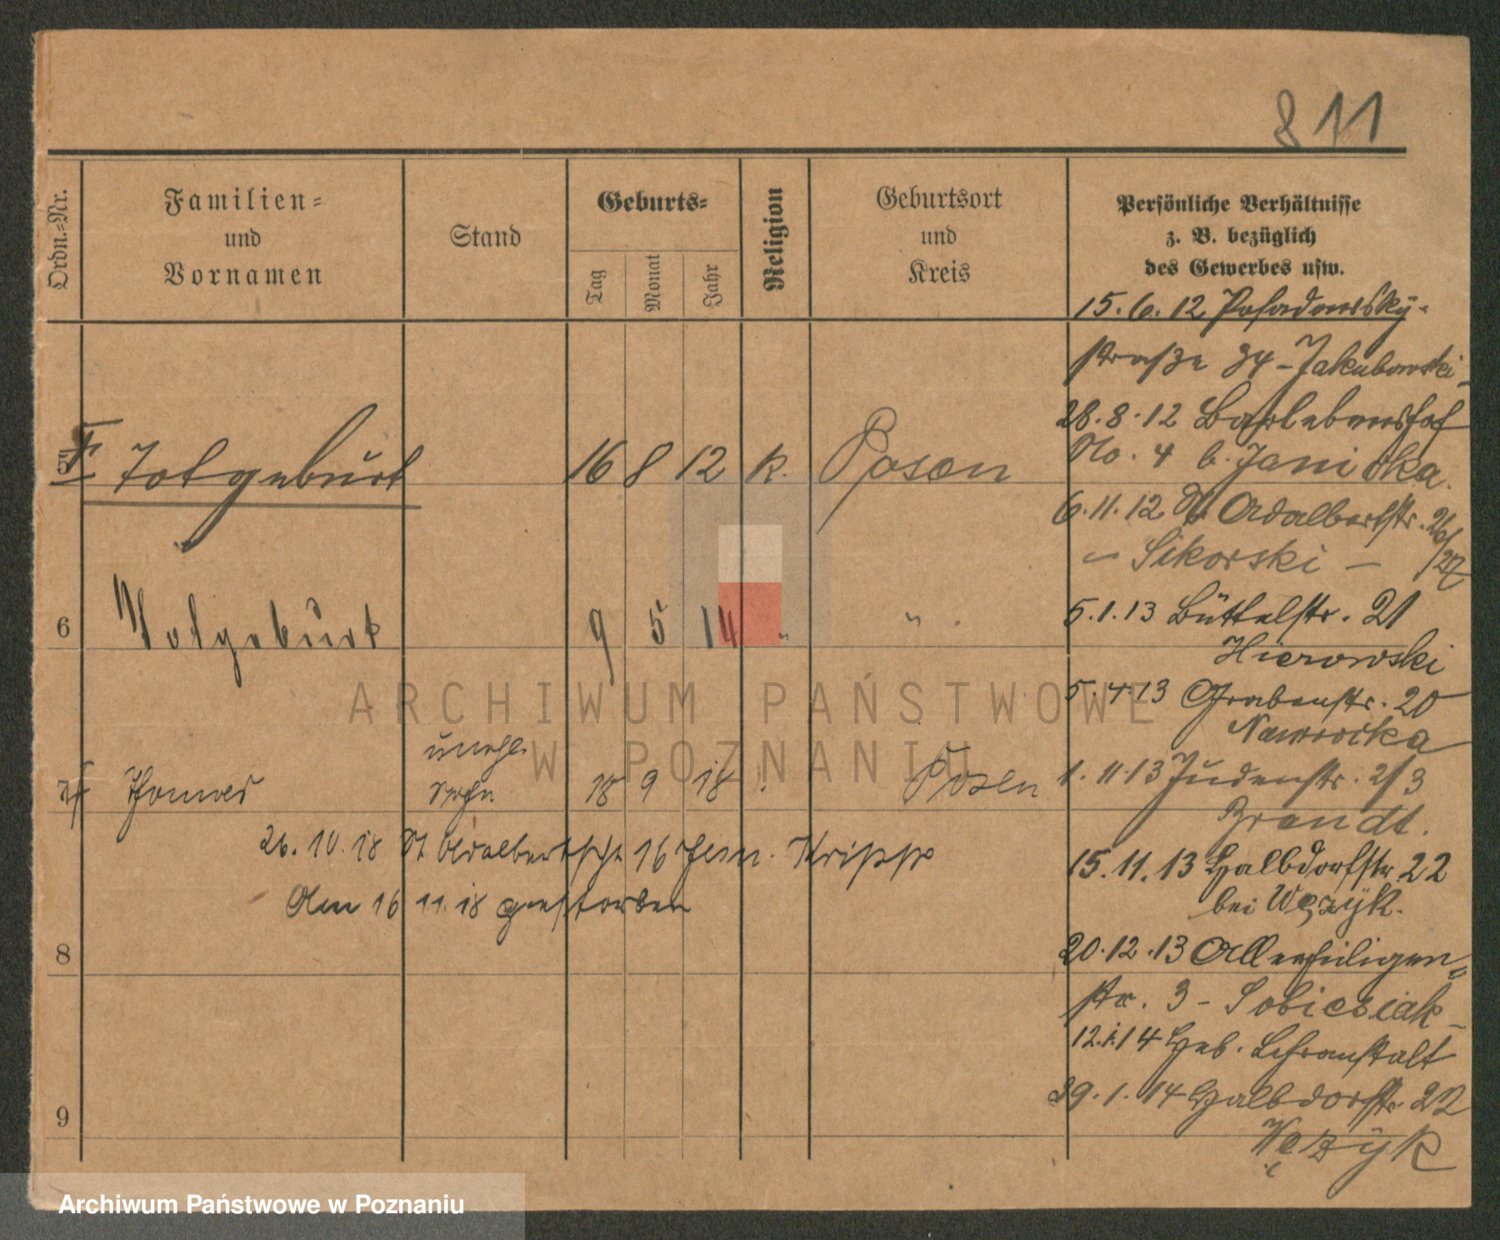 811
Ordn.-Nr.
Familien-
und
Vornamen
Stand
Geburts-
Tag
Monat
Jahr
Religion
Geburtsort
und
Kreis
Persönliche Verhältnisse
z. B. bezüglich
des Gewerbes usw.
5 Totgeburt 16 8 12 k. Posen
6 Totgeburt 9 5 14 " "
unehl.
7 Thomas Sohn 18 9 18 Posen
26.10.18 St Adalbertstr 16 Krippe
Am 16 11.18 gestorben
8
9
15.6.12 Posadowsky-
straße 34 - Jakubowski -
28.8.12 Bartelsenshof
No. 4 b. Janicka.
6.11.12 St Adalbertstr. 26/27
- Sikorski -
5.1.13 Büttelstr. 21
Hierowski
5.4.13 Grabenstr. 20
Nawrocka
1.11.13 Judenstr. 2/3
Brandt.
15.11.13 Halbdorfstr 22
bei Wężyk.
20.12.13 Allerheiligen-
str. 3 - Sobiesiak -
12.1.14 Heb. Lehranstalt
29.1.14 Halbdorfstr 22
Wężyk
ARCHIWUM PAŃSTWOWE
W POZNANIU
Archiwum Państwowe w Poznaniu